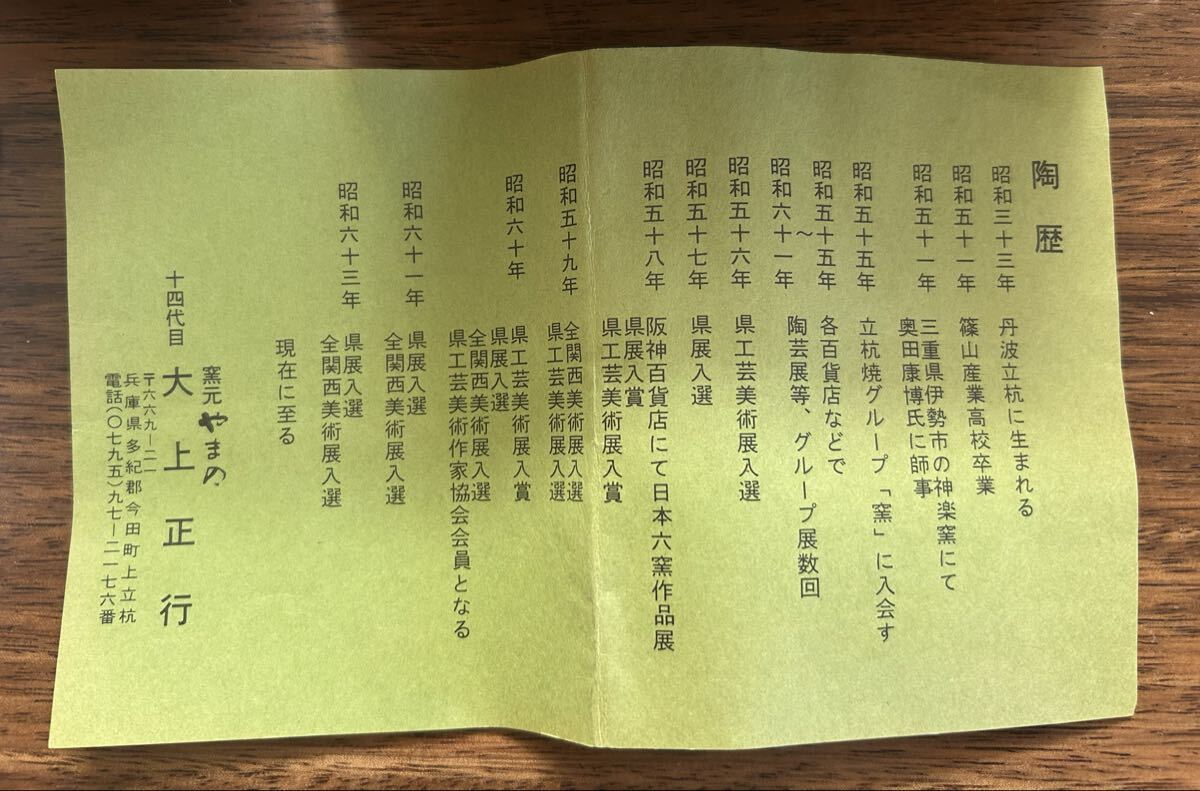 陶歴
昭和三十三年 丹波立杭に生まれる
昭和五十一年 篠山産業高校卒業
昭和五十一年 三重県伊勢市の神楽窯にて
奥田康博氏に師事
昭和五十五年 立杭焼グループ「窯」に入会す
昭和五十五年 各百貨店などで
〜
昭和六十一年 陶芸展等、グループ展数回
昭和五十六年 県工芸美術展入選
昭和五十七年 県展入選
昭和五十八年 阪神百貨店にて日本六窯作品展
県展入賞
県工芸美術展入賞
昭和五十九年 全関西美術展入選
県工芸美術展入選
昭和六十年 県工芸美術展入賞
県展入選
全関西美術展入選
県工芸美術作家協会会員となる
昭和六十一年 県展入選
全関西美術展入選
昭和六十三年 県展入選
全関西美術展入選
現在に至る
窯元やまの
十四代目 大上正行
〒六六九—二一
兵庫県多紀郡今田町上立杭
電話(〇七九五)九七—二一七六番